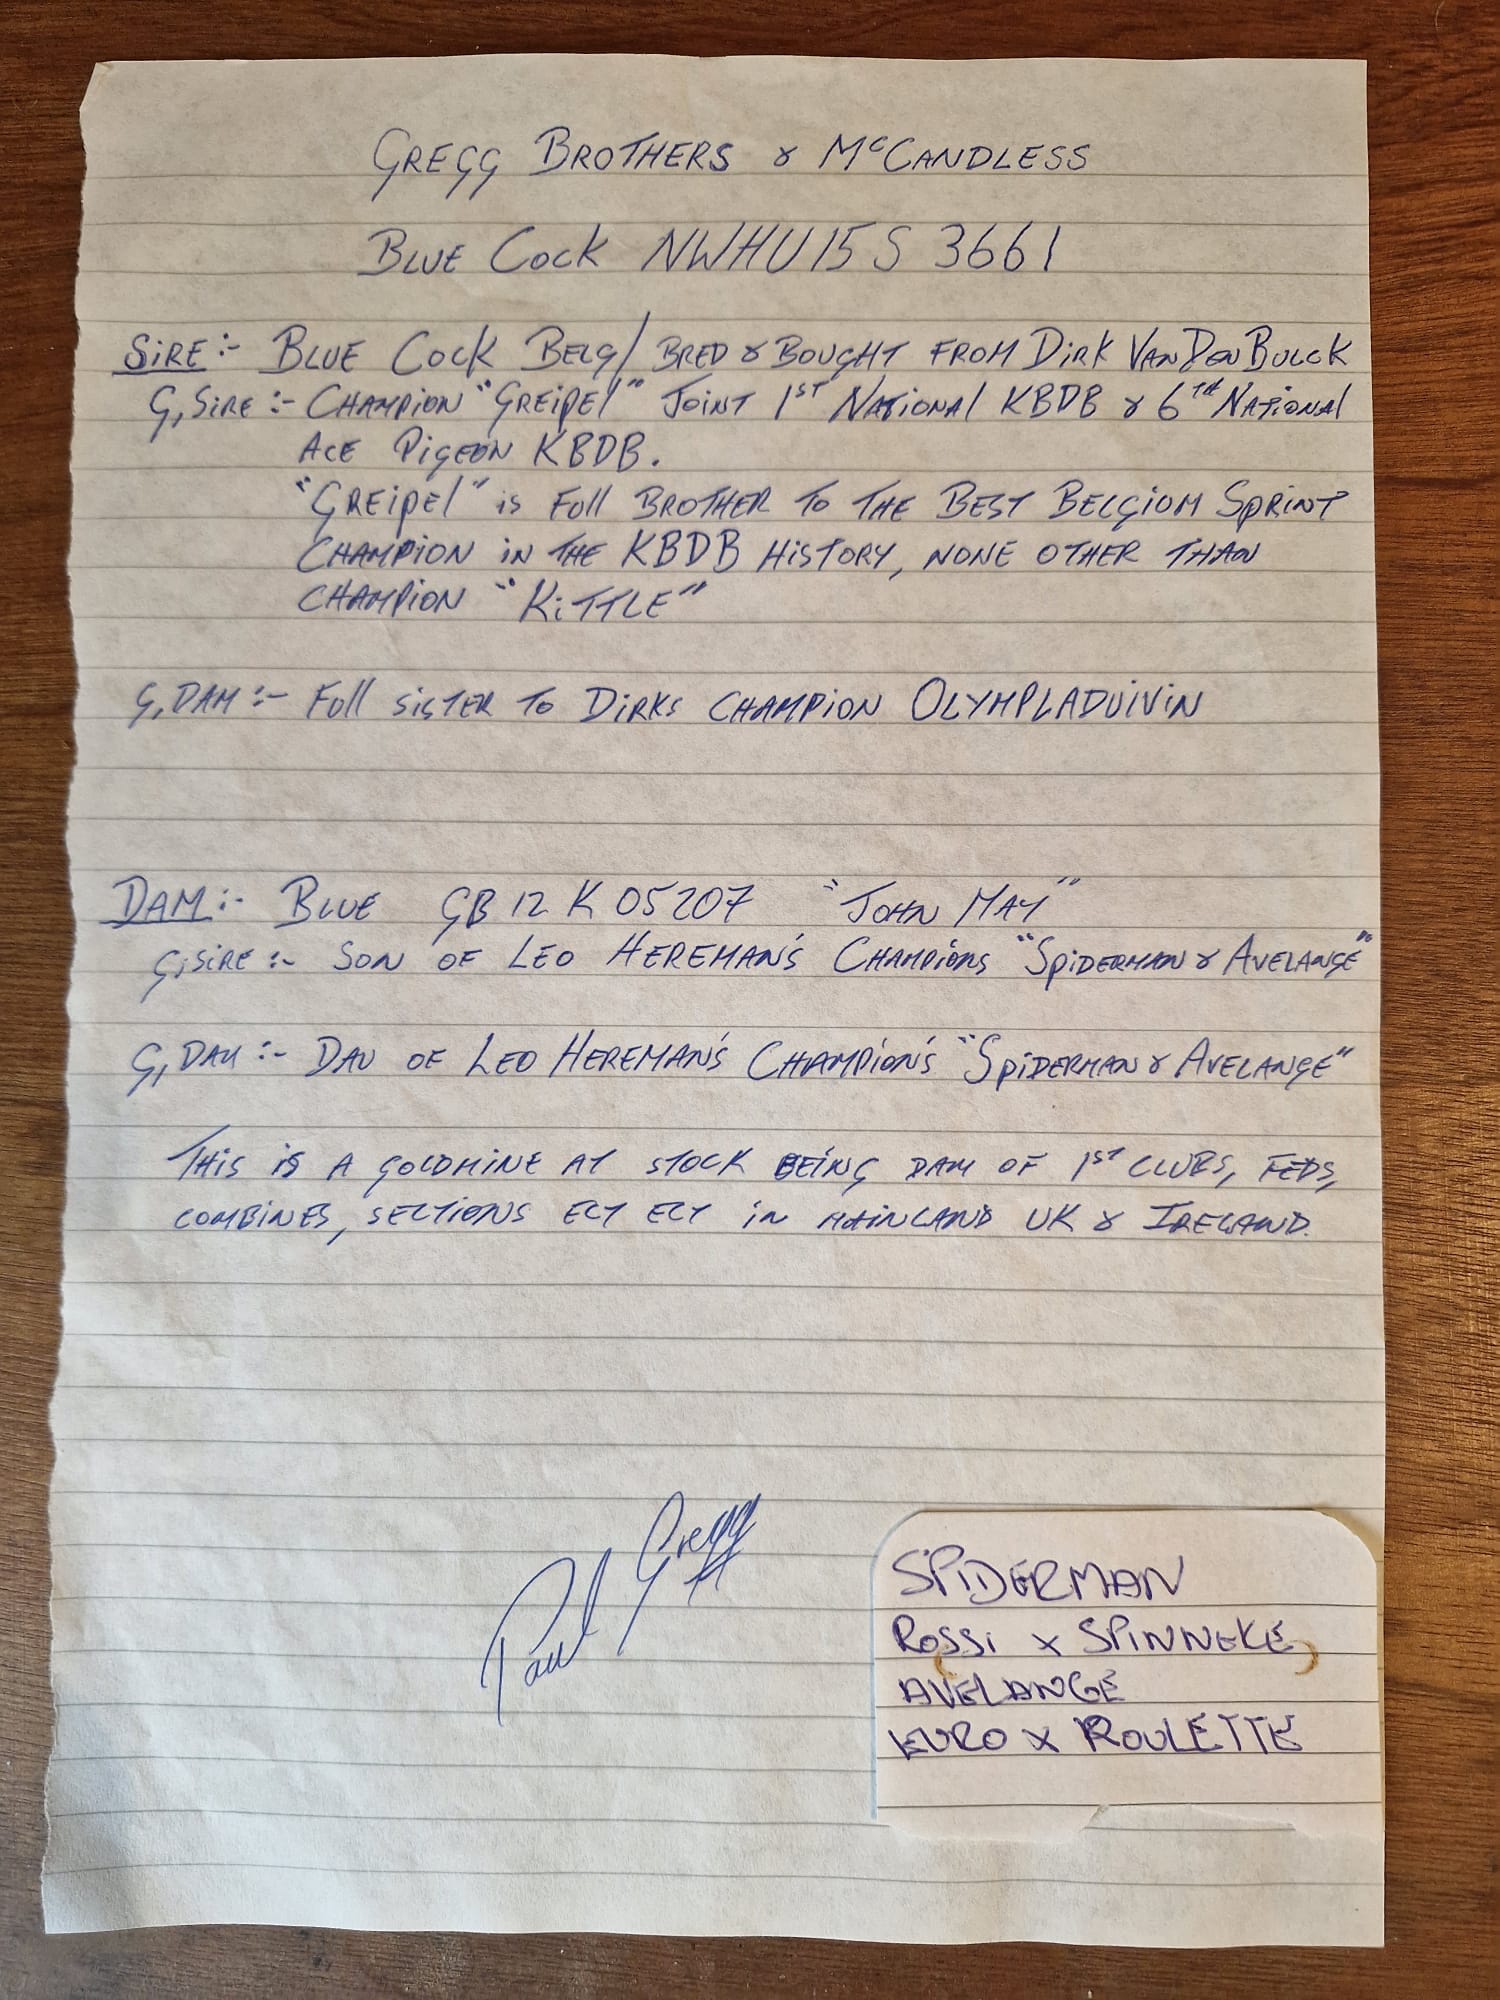 GREGG BROTHERS & McCANDLESS
BLUE COCK NWHU15 S 3661
SIRE:- BLUE COCK BELG/ BRED & BOUGHT FROM DIRK VANDENBULCK
G,SIRE:- CHAMPION "GREIPEL" JOINT 1ST NATIONAL KBDB & 6TH NATIONAL
ACE PIGEON KBDB.
"GREIPEL" is FULL BROTHER TO THE BEST BELGIUM SPRINT
CHAMPION IN THE KBDB HISTORY, NONE OTHER THAN
CHAMPION "KITTLE"
G,DAM:- FULL SISTER TO DIRKS CHAMPION OLYMPLADUIVIN
DAM:- BLUE GB 12 K 05207 "JOHN MAY"
G,SIRE:- SON OF LEO HEREMAN'S CHAMPIONS "SPIDERMAN & AVELANGE"
G,DAM:- DAU OF LEO HEREMAN'S CHAMPION'S "SPIDERMAN & AVELANGE"
THIS IS A GOLDMINE AT STOCK BEING DAM OF 1ST CLUBS, FEDS,
COMBINES, SECTIONS ECT ECT IN MAINLAND UK & IRELAND.
Paul Gregg
SPIDERMAN
ROSSI x SPINNEKE
AVELANGE
EURO x ROULETTE